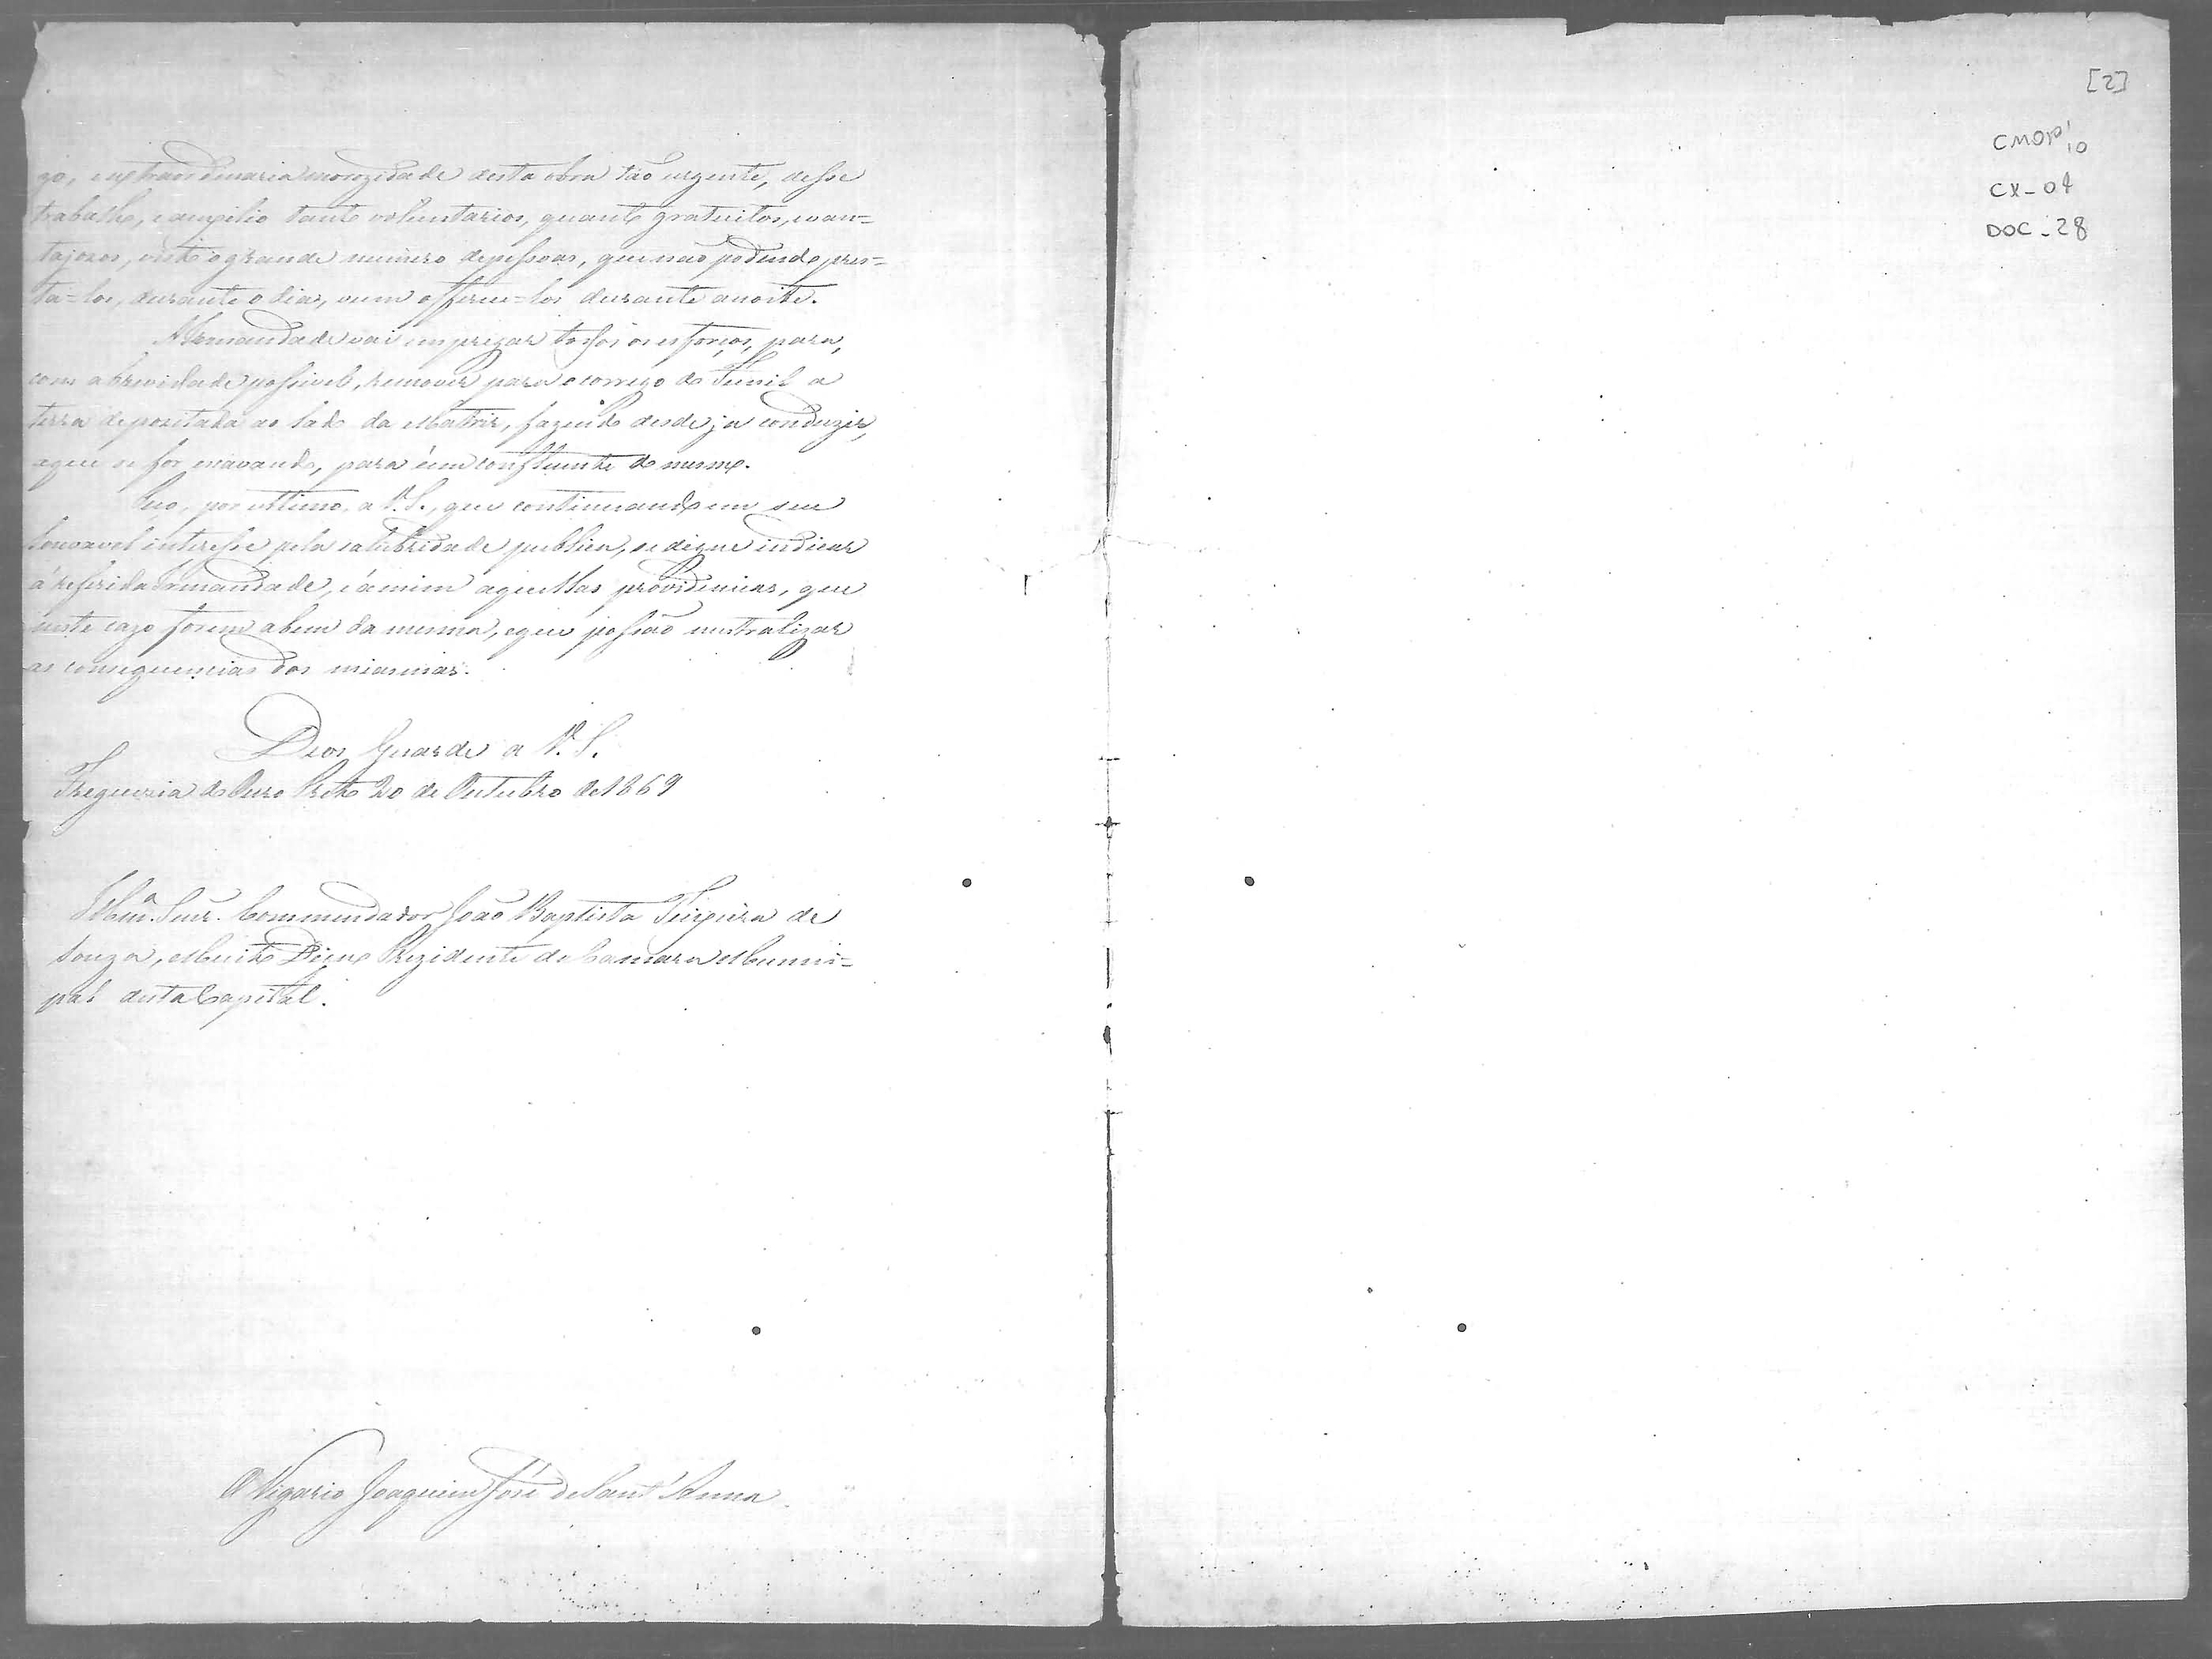 go, extraordinaria morozidade desta obra tão urgente, desse
trabalho, e auxilio tanto voluntarios, quanto gratuitos, e van=
tajozos, visto o grande numero de pessoas, que não podendo pres=
ta=los, durante o dia, vem offerece=los durante a noite.
A Irmandade vai empregar todos os esforços, para,
com a brevidade possivel, remover para o corrego do Funil a
terra depozitada ao lado da Matriz, fazendo desde ja conduzir,
a que se for escavando, para um confluente do mesmo.
por ultimo, a V. S., que continuando em seu
louvavel interesse pela salubridade publica, se digne indicar
á referida Irmandade, e á mim aquellas providencias, que
neste cazo forem a bem da mesma, e que possão neutralizar
as consequencias dos miasmas.
Deos Guarde a V. S.
Freguezia do Ouro Preto 20 de Outubro de 1869
Illmo. Snr. Commendador João Baptista Teixeira de
Souza, Muito Digno Prezidente da Camara Munici=
pal desta Capital.
O Vigario Joaquim José de Sant'Anna
[2]
CMOP' 10
CX-04
DOC-28